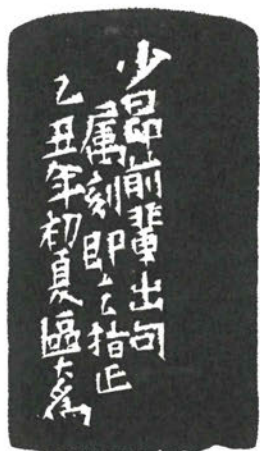 少昂前辈出句
属刻即乞指正
乙丑年初夏區大為